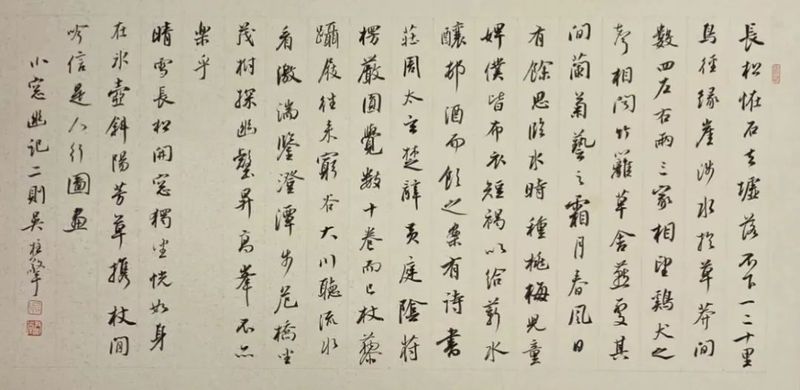 長松怪石去墟落不下一二十里
鳥徑緣崖涉水於草莽間
數四左右兩三家相望鷄犬之
聲相聞竹籬草舍燕處其
間蘭菊藝之霜月春風日
有餘思臨水時種桃梅兒童
婢僕皆布衣短褐以給薪水
釀邨酒而飲之案有詩書
莊周太玄楚辭黃庭陰符
楞嚴圓覺數十卷而已杖藜
躡屐往來窮谷大川聽流水
看激湍鑒澄潭步危橋坐
茂樹探幽壑昇高峯不亦
樂乎
晴雪長松開窓獨坐恍如身
在冰壺斜陽芳草攜杖閒
吟信是人行圖畫
小窓幽記二則吳